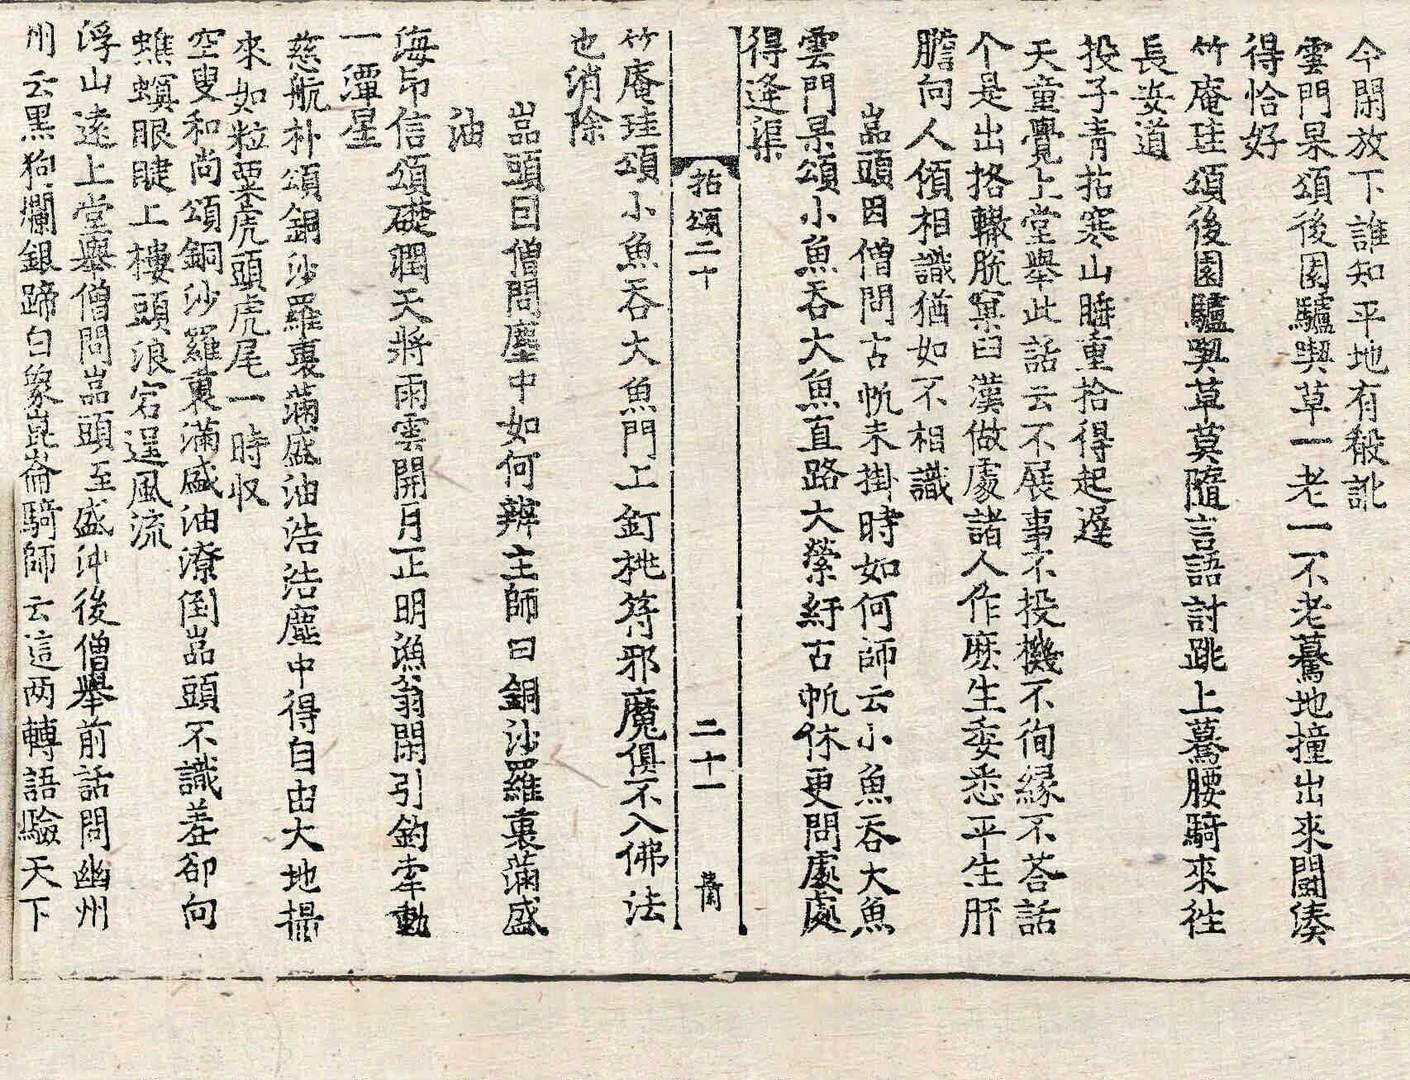 今閑放下誰知平地有殽訛
雲門杲頌後園驢喫草一老一不老驀地撞出來閙湊
得恰好
竹庵珪頌後園驢喫草莫隨言語討跳上驀腰騎來徃
長安道
投子青拈寒山睡重拾得起遲
天童覺上堂舉此話云不展事不投機不徇緣不荅話
个是出格轍脫窠臼漢做處諸人作麽生委悉平生肝
膽向人傾相識猶如不相識
嵓頭因僧問古帆未掛時如何師云小魚吞大魚
雲門杲頌小魚吞大魚直路大縈紆古帆休更問處處
得逢渠
拈頌二十
二十一
竹庵珪頌小魚吞大魚門上釘桃符邪魔俱不入佛法
也消除
嵓頭因僧問塵中如何辨主師曰銅沙羅裏滿盛
油
海印信頌礎潤天將雨雲開月正明漁翁閑引釣牽動
一潭星
慈航朴頌銅沙羅裏滿盛油浩浩塵中得自由大地撮
來如粒粟虎頭虎尾一時収
空叟和尚頌銅沙羅裏滿盛油潦倒嵓頭不識羞卻向
蟭螟眼睫上樓頭浪宕逞風流
浮山遠上堂舉僧問嵓頭至盛油後僧舉前話問幽州
州云黑狗爛銀蹄白象崑崙騎師云這两轉語驗天下